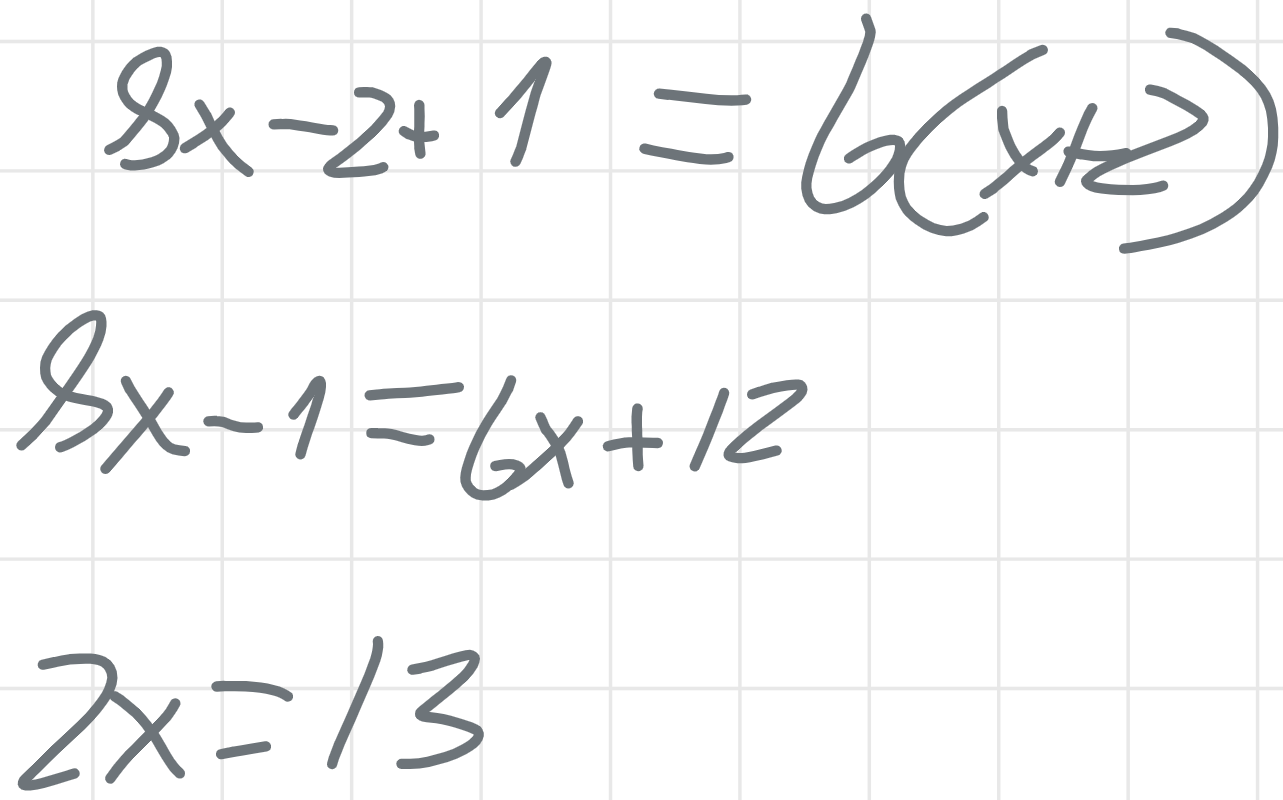 8x-2+1 = 6(x+2)
8x-1=6x+12
2x=13